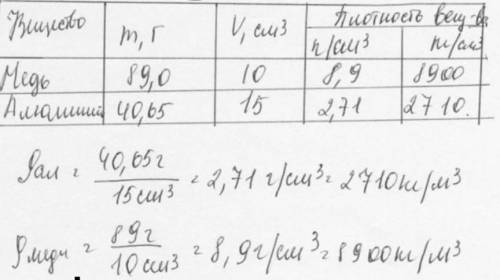 Вещество m, г V, см³ Плотность вещ-ва
г/см³ кг/см³
Медь 89,0 10 8,9 8900
Алюминий 40,65 15 2,71 2710.
ρал = 40,65г / 15см³ = 2,71 г/см³ = 2710 кг/м³
ρмеди = 89г / 10см³ = 8,9г/см³ = 8900кг/м³